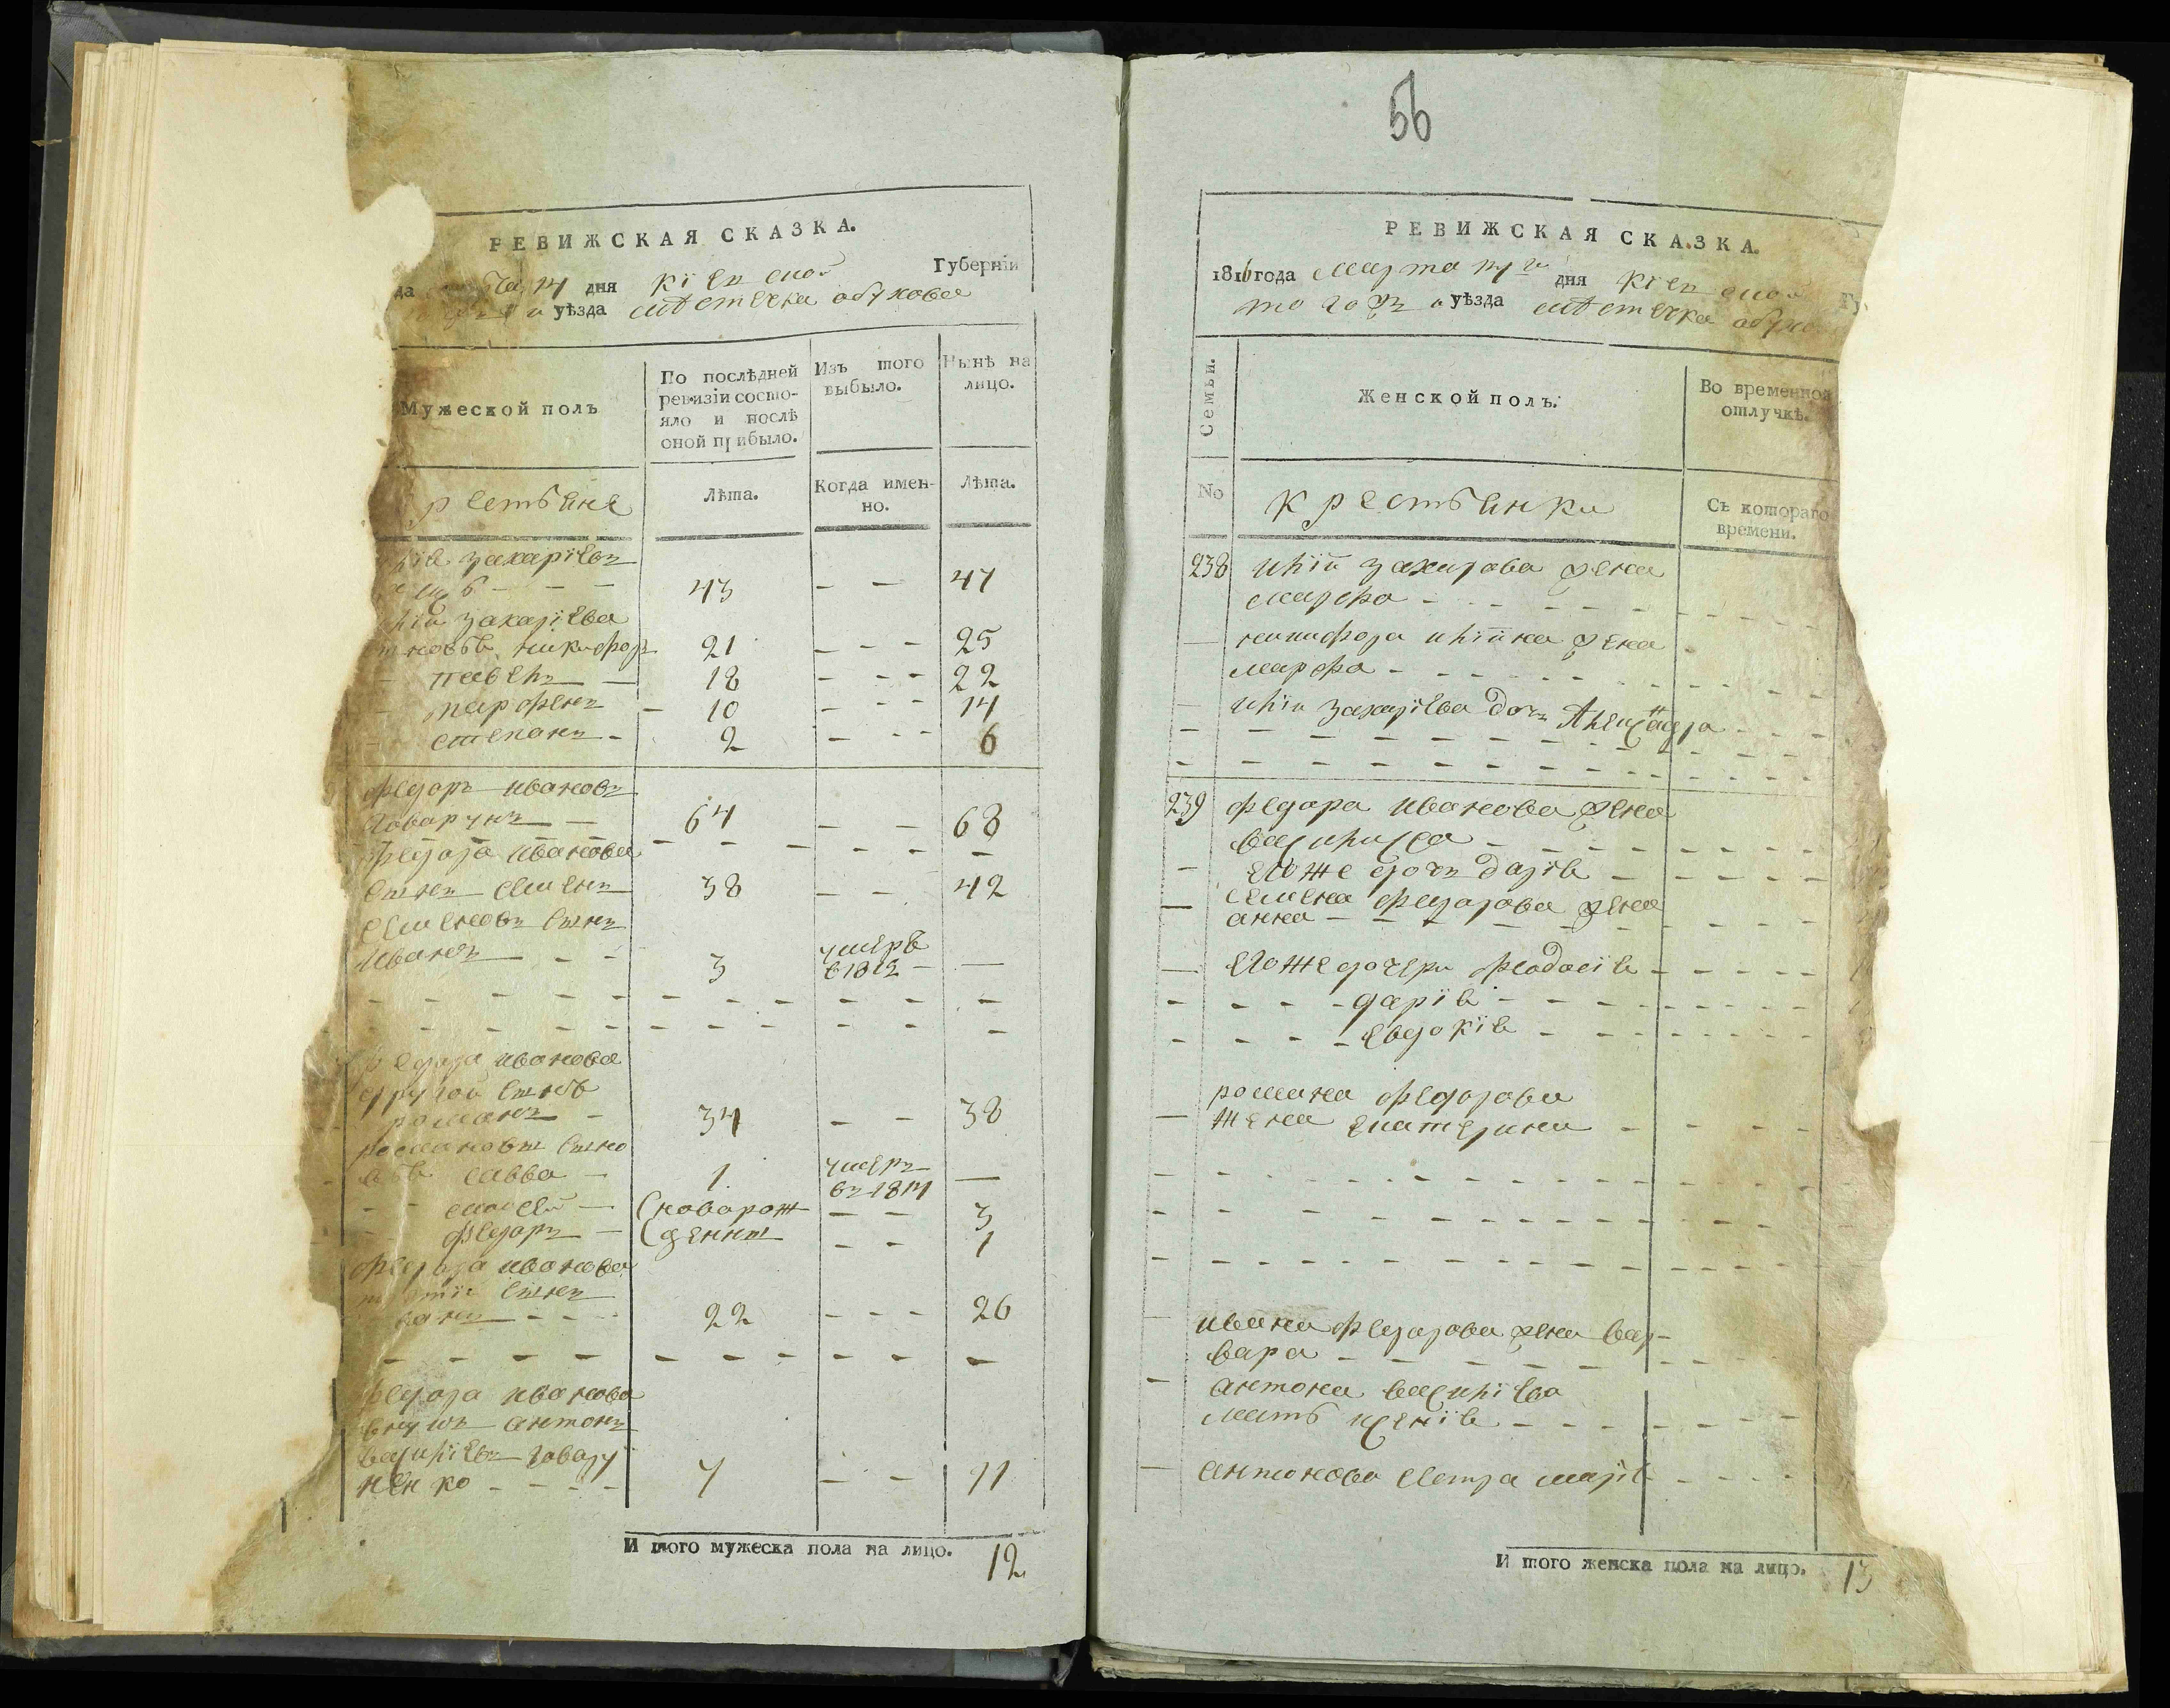 РЕВИЖСКАЯ СКАЗКА.
да 14 дня Кіевской Губерніи
уѣзда мѣстечка обухова
Мужеской полъ
По послѣдней ревизіи состо-
яло и послѣ
оной прибыло.
Изъ того
выбыло.
Нынѣ на
лицо.
рестьяне
Лѣта.
Когда имен-
но.
Лѣта.
захаріевъ
43 – – 47
захаріева
никифоръ 21 – – – 25
– павелъ – 18 – – – 22
– парфенъ – 10 – – – 14
– степанъ – 2 – – – 6
федоръ ивановъ
говарунъ – 64 – – 68
федора иванова
сынъ семенъ 38 – – 42
семеновъ сынъ
иванъ – – 3 умеръ
в 1812 – –
федора иванова
другой сынъ
романъ – 34 – – 38
романовы сыно
вья савва – 1 умеръ
въ 1814 –
– – мосей – новорож – – 3
– федоръ – денны – – 1
федора иванова
сынъ
22 – – – 26
федора иванова
внукъ антонъ
васильевъ говару
ненко – – – – 7 – – 11
И того мужеска пола на лицо. 12
56
РЕВИЖСКАЯ СКАЗКА.
1816 года марта 14го дня Кіевской Гу
того уѣзда мѣстечка обухо
Семьи.
Женской полъ.
Во временной
отлучкѣ.
No
крестьянки
Съ котораго
времени.
238 иліи захарова жена
марфа – – – –
– никифора иліина жена
марфа – – – –
– иліи захаріева дочь Александра – – –
239 федора иванова жена
василиса – – – –
– его же дочь дарія – – –
– семена федорова жена
анна – – – –
– его же дочери феодосія – – –
– – – – дарія – – –
– – – – евдокія – – –
романа федорова
– жена екатерина – – –
– ивана федорова жена вар-
вара – – – –
– антона василіева
мать ксенія – – – –
– антонова сестра марія – – –
И того женска пола на лицо. 13